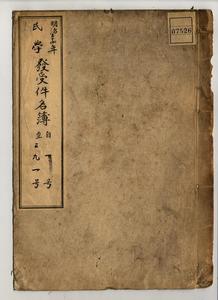 明治 年
民学 發受件名簿
自 一 号
至 九一号
07526